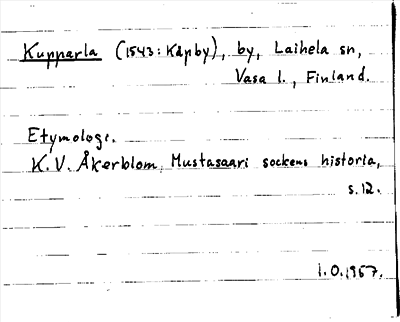 Kupparla (1543: Käpby), by, Laihela sn,
Vasa l., Finland.
Etymologi.
K.V. Åkerblom, Mustasaari sockens historia,
s.12.
I.O. 1957.